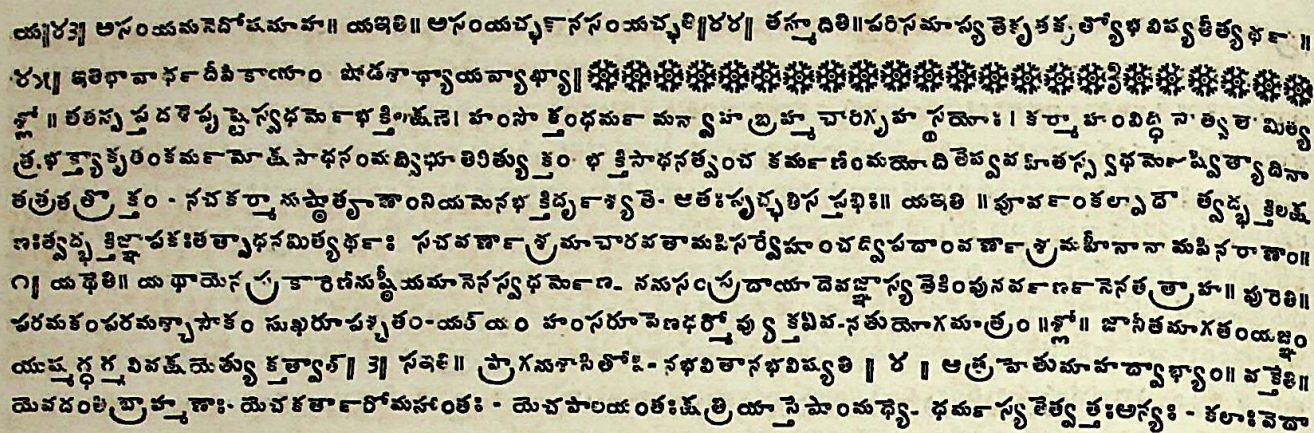 య॥౪౩॥ అసంయమనెదోషమాహ॥ యఇతి॥ అసంయచ్ఛన్ అసంయచ్ఛతి॥౪౪॥ తస్మాదితి॥పరిసమాస్యతెకృతకృత్యోభవిష్యతీత్యర్థః॥
౪౫॥ ఇతిభావార్థదీపికాయాం షోడశాధ్యాయవ్యాఖ్యా॥
శ్లో॥ తతస్సప్తదశెపృష్టెస్వధర్మెభక్తిలక్షణె। హంసొక్తంధర్మ మన్వాహ బ్రహ్మచారిగృహస్థయోః। కర్మాహంవిద్ధి సాత్వత మిత్య
త్ర.భక్త్యాకృతంకర్మమోక్షసాధనంమద్విభూతిరిత్యుక్తం భక్తిసాధనత్వంచ కర్మణాంమయోదితెష్వవహితస్స్వధర్మెష్విత్యాదినా
తత్రతత్రొక్తం - నచకర్మానుష్ఠాతౄణాంనియమెనభక్తిదృశ్యతె- అతఃపృచ్ఛతిసప్తభిః॥ యఇతి ॥ పూర్వంకల్పాదౌ త్వద్భక్తిలక్ష
ణఃత్వద్భక్తిజ్ఞాపకఃతత్సాధనమిత్యర్థః సచవర్ణాశ్రమాచారవతామపిసర్వెషాంచద్విపదాంవర్ణాశ్రమహీనానామపినరాణాం॥
౧॥ యథెతి॥ యథాయెనప్రకారెణానుష్ఠీయమానెనస్వధర్మెణ- ననుసంప్రదాయాదెవజ్ఞాస్యతెకింపునర్వర్ణనెనతత్రాహ॥ పురెతి॥
పరమకంపరమశ్చాసౌకం సుఖరూపశ్చతం-యత్యం హంసరూపెణధర్మోవ్యుక్తఏవ-నతుయోగమాత్రం ॥శ్లో॥ జానీతమాగతంయజ్ఞం
యుష్మద్ధర్మవివక్షయెత్యుక్తత్వాత్॥ ౩॥ సఇతి॥ ప్రాగనుశాసితోపి- నభవితానభవిష్యతి ॥ ౪ ॥ అత్రహెతుమాహద్వాభ్యాం॥ వక్తెతి॥
యెవదంతిబ్రాహ్మణాః- యెచకర్తారోమహాంతః - యెచపాలయంతఃక్షత్రియాస్తెషాంమధ్యె- ధర్మస్యతెత్వత్తఃఅన్యః - కలాఃవెదా